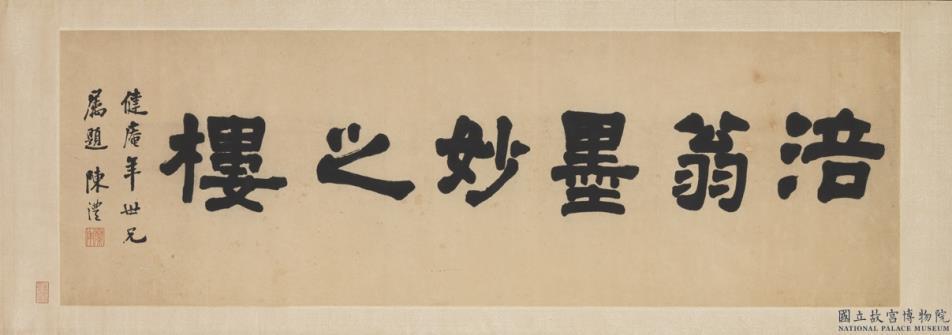 涪翁墨妙之樓
健庵年世兄
屬題 陳澧
國立故宮博物院
NATIONAL PALACE MUSEUM